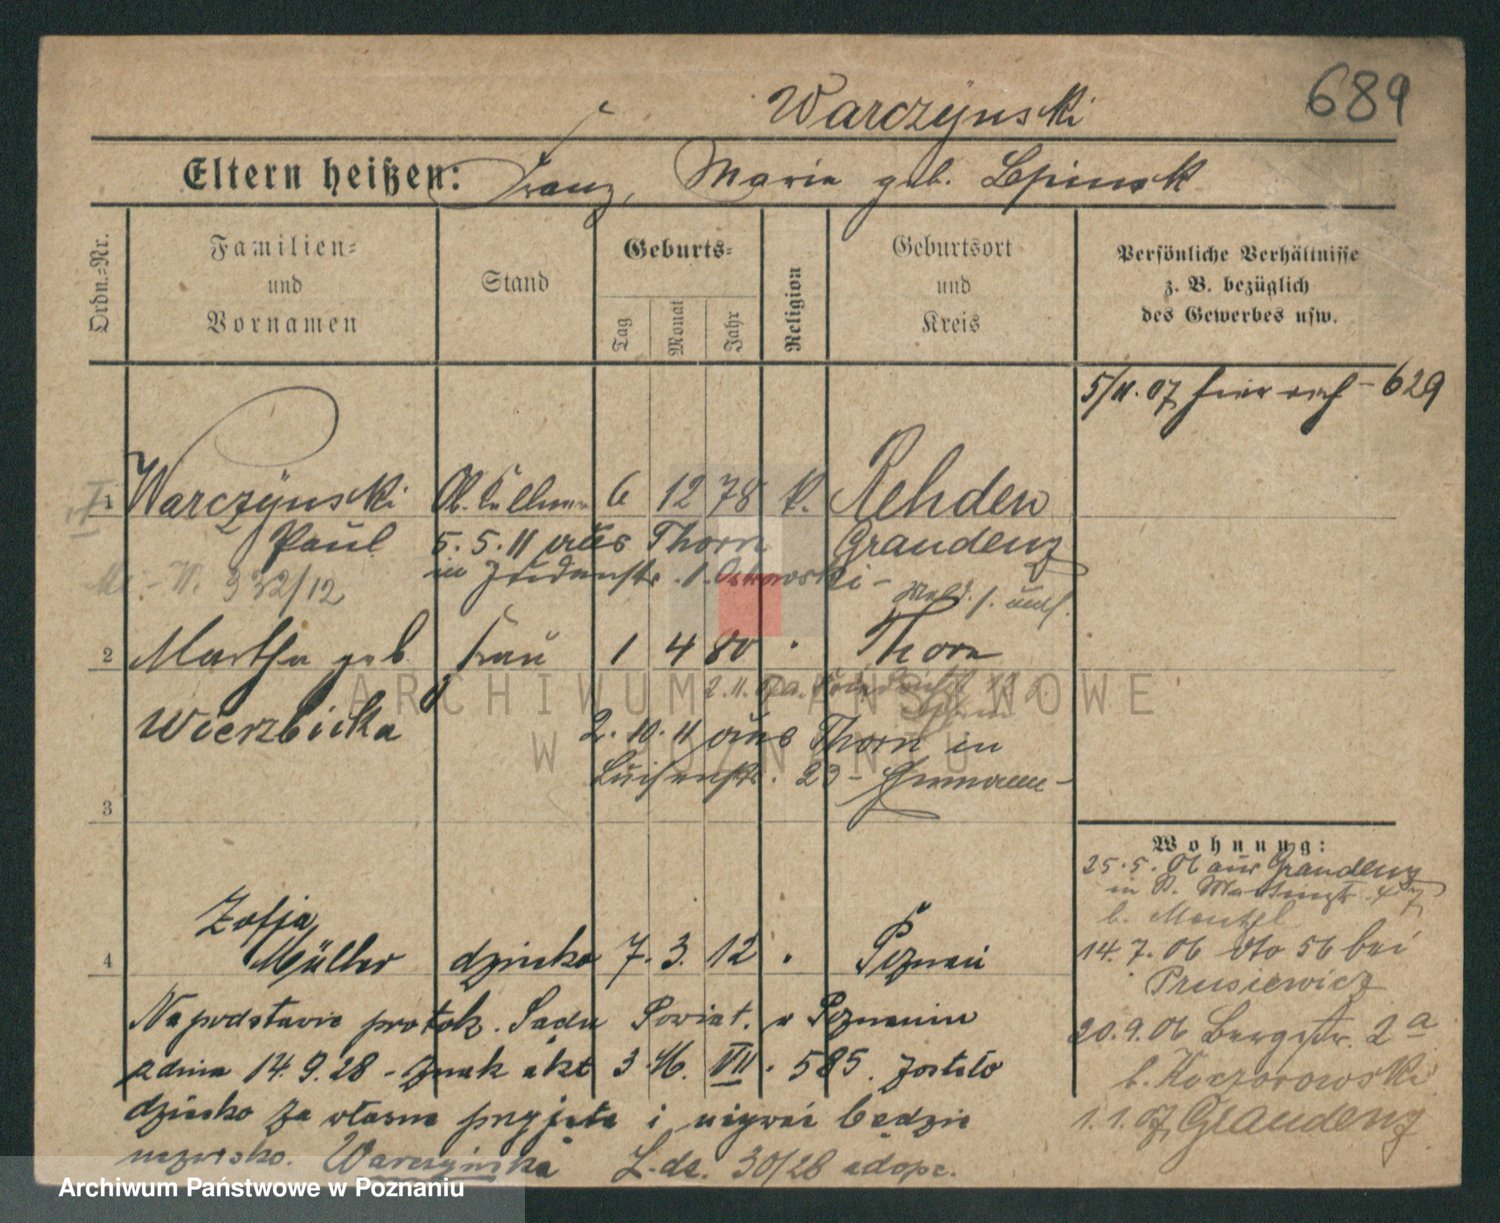 Warczynski
689
Eltern heißen: Franz, Maria geb. Lepinsk
Ordn.=Nr.
Familien=
und
Vornamen
Stand
Geburts=
Tag
Monat
Jahr
Religion
Geburtsort
und
Kreis
Persönliche Verhältnisse
z. B. bezüglich
des Gewerbes usw.
5/11.07 629
1 Warczynski Ob. Kellner 6 12 78 k. Rehden
Paul 5. 5. 11 aus Thorn Graudenz
332/12
2 Martha geb. Frau 1 4 80 " Thorn
Wierzbicka
2. 10. 11 aus Thorn in
Luisenstr. 23 - Hermann -
3
Wohnung:
25. 5. 06 aus Graudenz
in St. Martinstr. 47
b. Mentzel
14. 7. 06 dto 56 bei
Prusiewicz
20. 9. 06 Bergstr. 2a
b. Koczorowski
1. 1. 07 Graudenz
Zofja
4 Müller dziecko 7. 3. 12 " Poznań
Na podstawie protok. Sądu Powiat. w Poznaniu
z dnia 14. 9. 28 - znak akt 3. M. VII. 585. zostało
dziecko za własne przyjęte i używać będzie
nazwisko. Warczyńska L.dz. 30/28 adopc.
ARCHIWUM PAŃSTWOWE
W POZNANIU
Archiwum Państwowe w Poznaniu